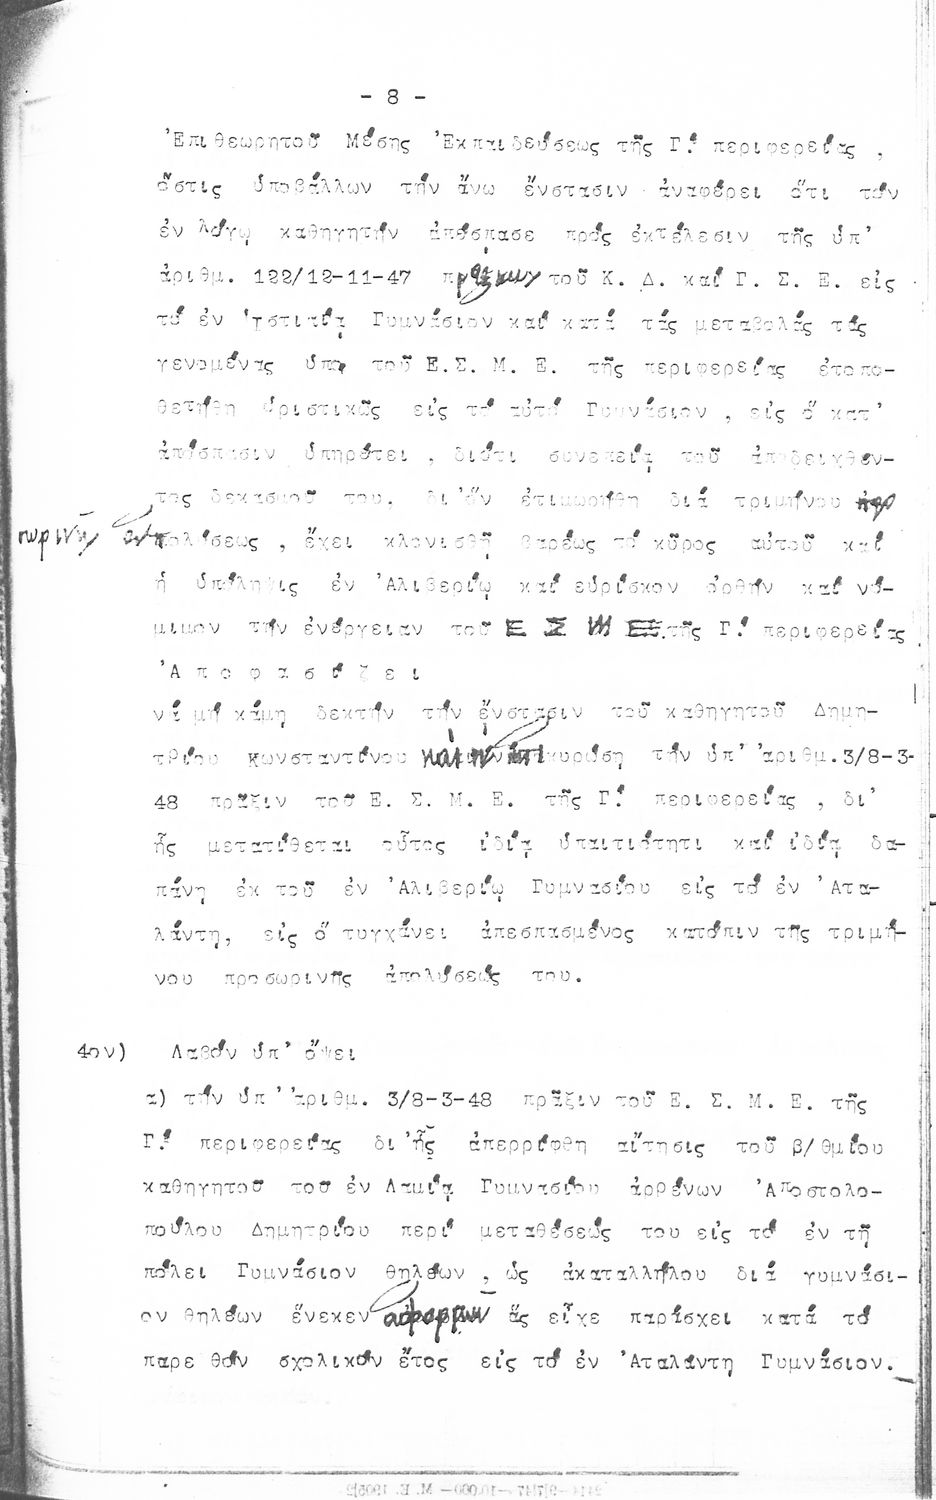 - 8 -
Ἐπιθεωρητοῦ Μέσης Ἐκπαιδεύσεως τῆς Γ.′ περιφερείας ,
ὅστις ὑποβάλλων τήν ἄνω ἔνστασιν ἀναφέρει ὅτι τόν
ἐν λόγῳ καθηγητήν ἀπέσπασε πρός ἐκτέλεσιν τῆς ὑπ'
ἀριθμ. 122/12-11-47 πράξεως τοῦ Κ. Δ. καί Γ. Σ. Ε. εἰς
τό ἐν Ἱστιαίᾳ Γυμνάσιον καί κατά τάς μεταβολάς τάς
γενομένας ὑπό τοῦ Ε.Σ. Μ. Ε. τῆς περιφερείας ἐτοπο-
θετήθη ὁριστικῶς εἰς τό αὐτό Γυμνάσιον , εἰς ὅ κατ'
ἀπόσπασιν ὑπηρέτει , διότι συνεπείᾳ τοῦ ἀποδειχθέν-
τος δεκασμοῦ του, δι'ὅν ἐτιμωρήθη διά τριμήνου προ
σωρινῆς ἀπολύσεως , ἔχει κλονισθῆ βαρέως τό κῦρος αὐτοῦ καί
ἡ ὑπόληψις ἐν Ἀλιβερίῳ καί εὑρίσκον ὀρθήν καί νό-
μιμον τήν ἐνέργειαν τοῦ Ε Σ Μ Ε τῆς Γ.′ περιφερείας
Ἀ π ο φ α σ ί ζ ε ι
νά μή κάμη δεκτήν τήν ἔνστασιν τοῦ καθηγητοῦ Δημη-
τρίου Κωνσταντίνου καί νά ἐπικυρώση τήν ὑπ' ἀριθμ.3/8-3-
48 πρᾶξιν τοῦ Ε. Σ. Μ. Ε. τῆς Γ.′ περιφερείας , δι'
ἧς μετατίθεται οὗτος ἰδίᾳ ὑπαιτιότητι καί ἰδίᾳ δα-
πάνη ἐκ τοῦ ἐν Ἀλιβερίῳ Γυμνασίου εἰς τό ἐν Ἀτα-
λάντη, εἰς ὅ τυγχάνει ἀπεσπασμένος κατόπιν τῆς τριμή-
νου προσωρινῆς ἀπολύσεώς του.
4ον) Λαβόν ὑπ' ὄψει
α) τήν ὑπ' ἀριθμ. 3/8-3-48 πρᾶξιν τοῦ Ε. Σ. Μ. Ε. τῆς
Γ.′ περιφερείας δι' ἧς ἀπερρίφθη αἴτησις τοῦ β/θμίου
καθηγητοῦ τοῦ ἐν Λαμίᾳ Γυμνασίου ἀρρένων Ἀποστολο-
πούλου Δημητρίου περί μεταθέσεώς του εἰς τό ἐν τῇ
πόλει Γυμνάσιον θηλέων , ὡς ἀκαταλλήλου διά γυμνάσι-
ον θηλέων ἕνεκεν ἀφορμῶν ἅς εἶχε παράσχει κατά τό
παρεθόν σχολικόν ἔτος εἰς τό ἐν Ἀταλάντη Γυμνάσιον.